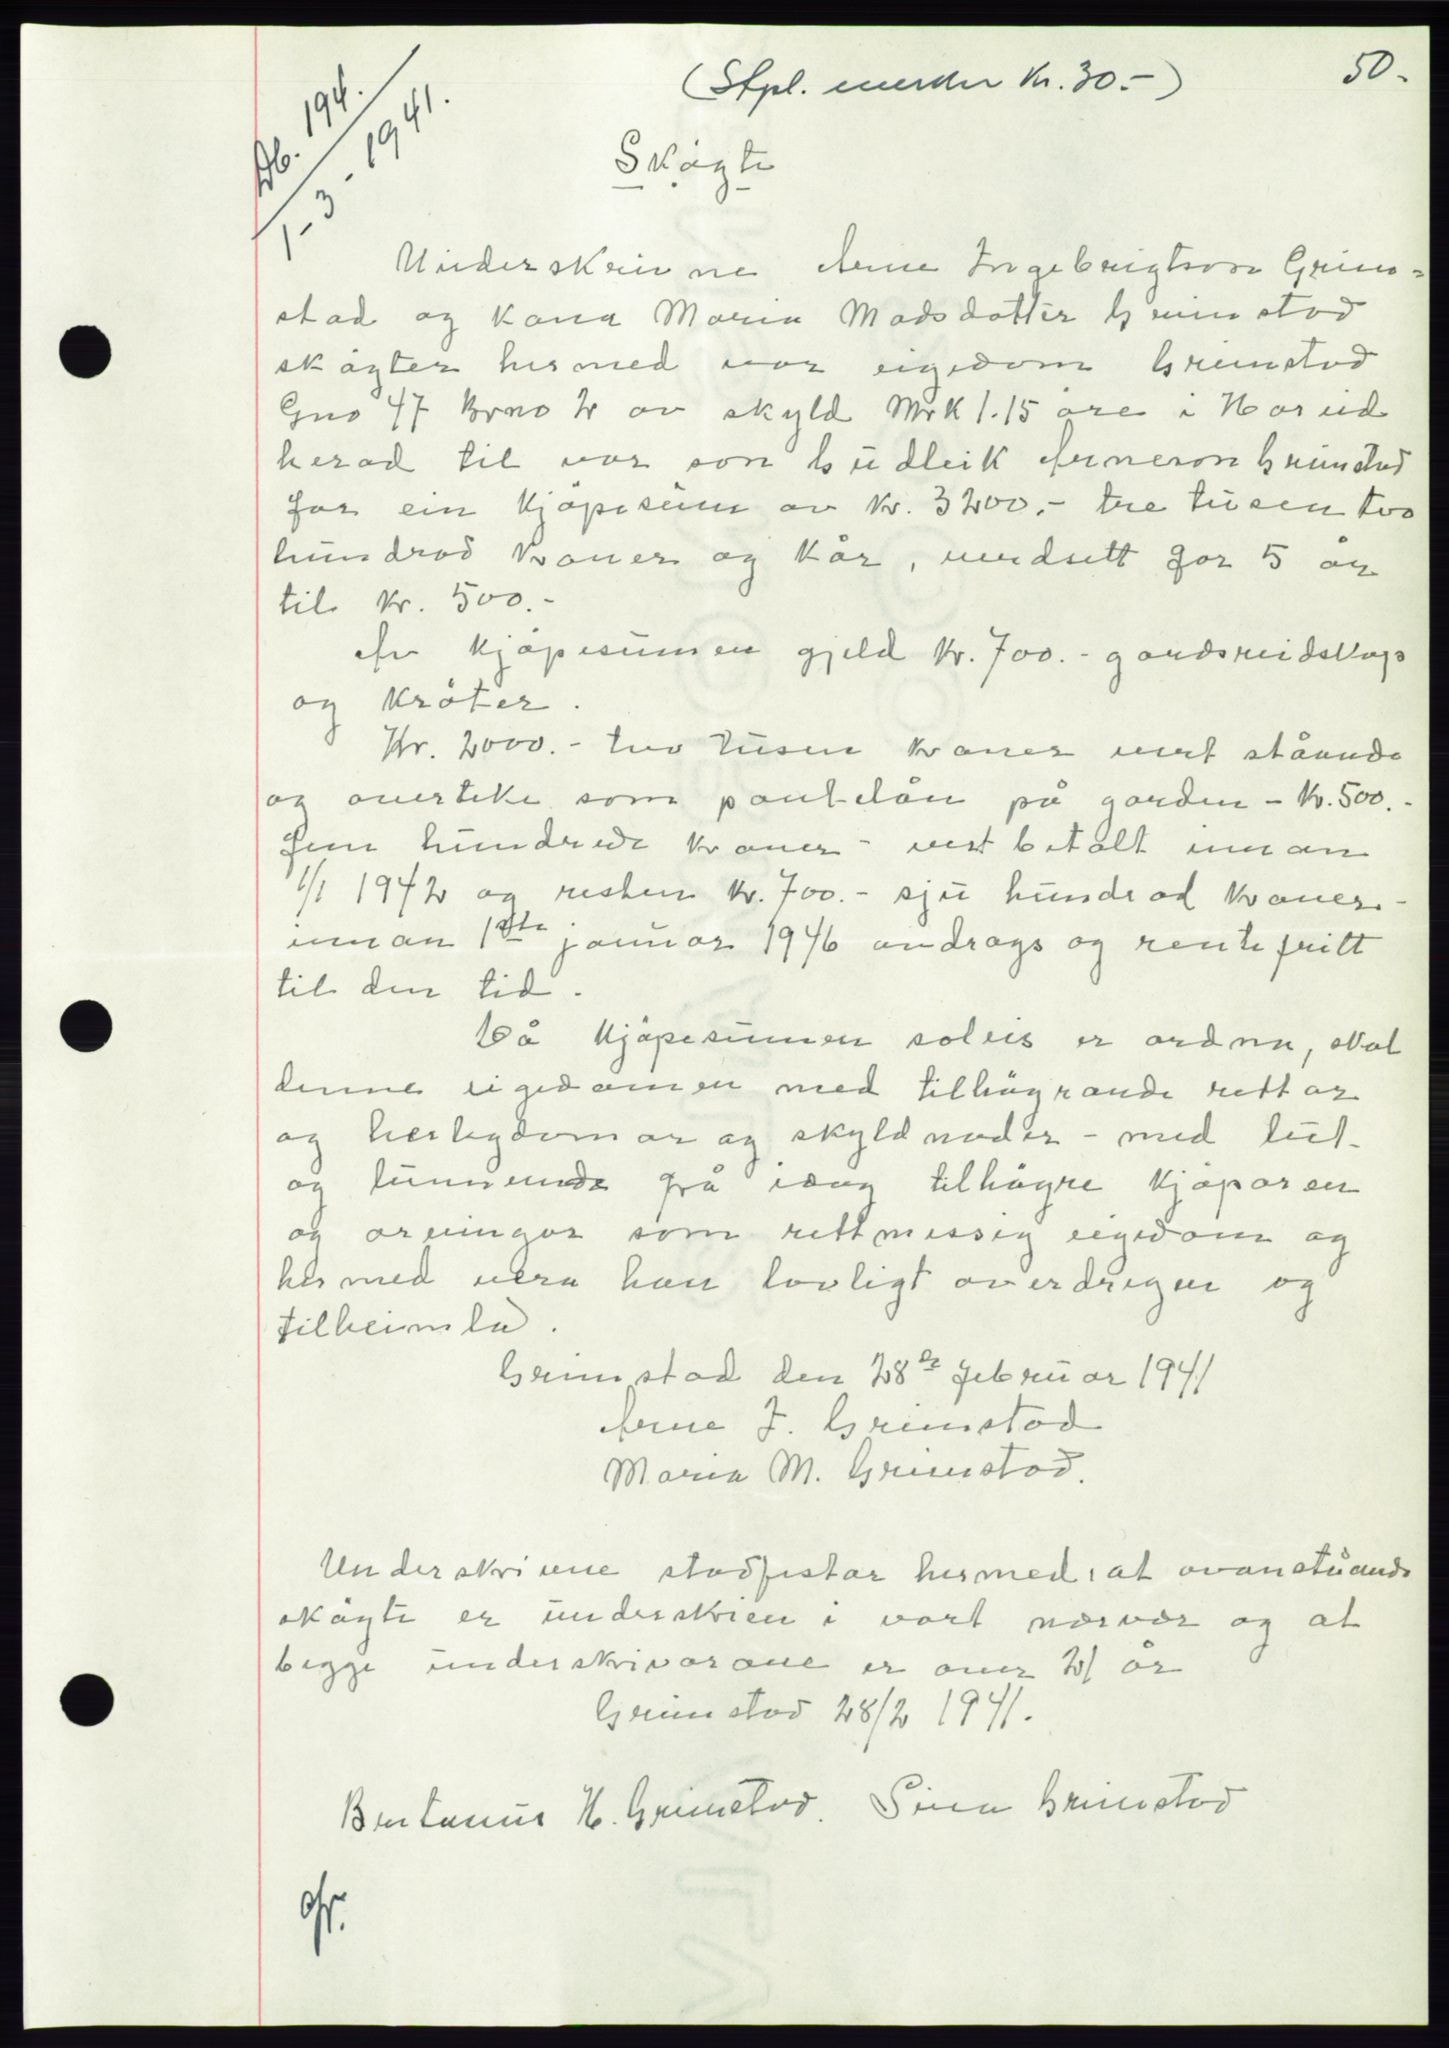 50.
(Stpl. merker kr. 30.-)
Db. 194.
1-3-1941.
Skøyte
Underskrivne Arne Ingebrigtson Grim-
stad og kona Maria Madsdotter Grimstad
skøyter hermed vor eigedom Grimstad
Gno 47 Brno 2 av skyld Mrk 1.15 øre i Hareid
herad til vor son Gudleik Arneson Grimstad
for ein kjøpesum av kr. 3200.- tre tusen tvo
hundrad kroner og kår, verdsett for 5 år
til kr. 500.-
Av kjøpesumen gjeld kr. 700.- gardsreidskap
og krøter.
Kr. 2000.- tvo tusen kroner vert ståande
og overteke som pantelån på garden - kr. 500.-
fem hundrede kroner - vert betalt innan
1/1 1942 og resten kr. 700.- sju hundrad kroner -
innan 1ste januar 1946 avdrags og rentefritt
til den tid.
Då kjøpesumen soleis er ordna, skal
denne eigedomen med tilhøyrande rettar
og herlegdomar og skyldnader - med lut-
og lunnende frå idag tilhøyre kjøparen
og arvingar som rettmessig eigedom og
hermed vera han lovligt overdregen og
tilheimla.
Grimstad den 28de februar 1941
Arne I. Grimstad
Maria M. Grimstad.
Underskrivne stadfestar hermed, at ovanståande
skøyte er underskriven i vort nærvær og at
begge underskrivarane er over 21 år
Grimstad 28/2 1941.
Bertanus H. Grimstad. Sina Grimstad